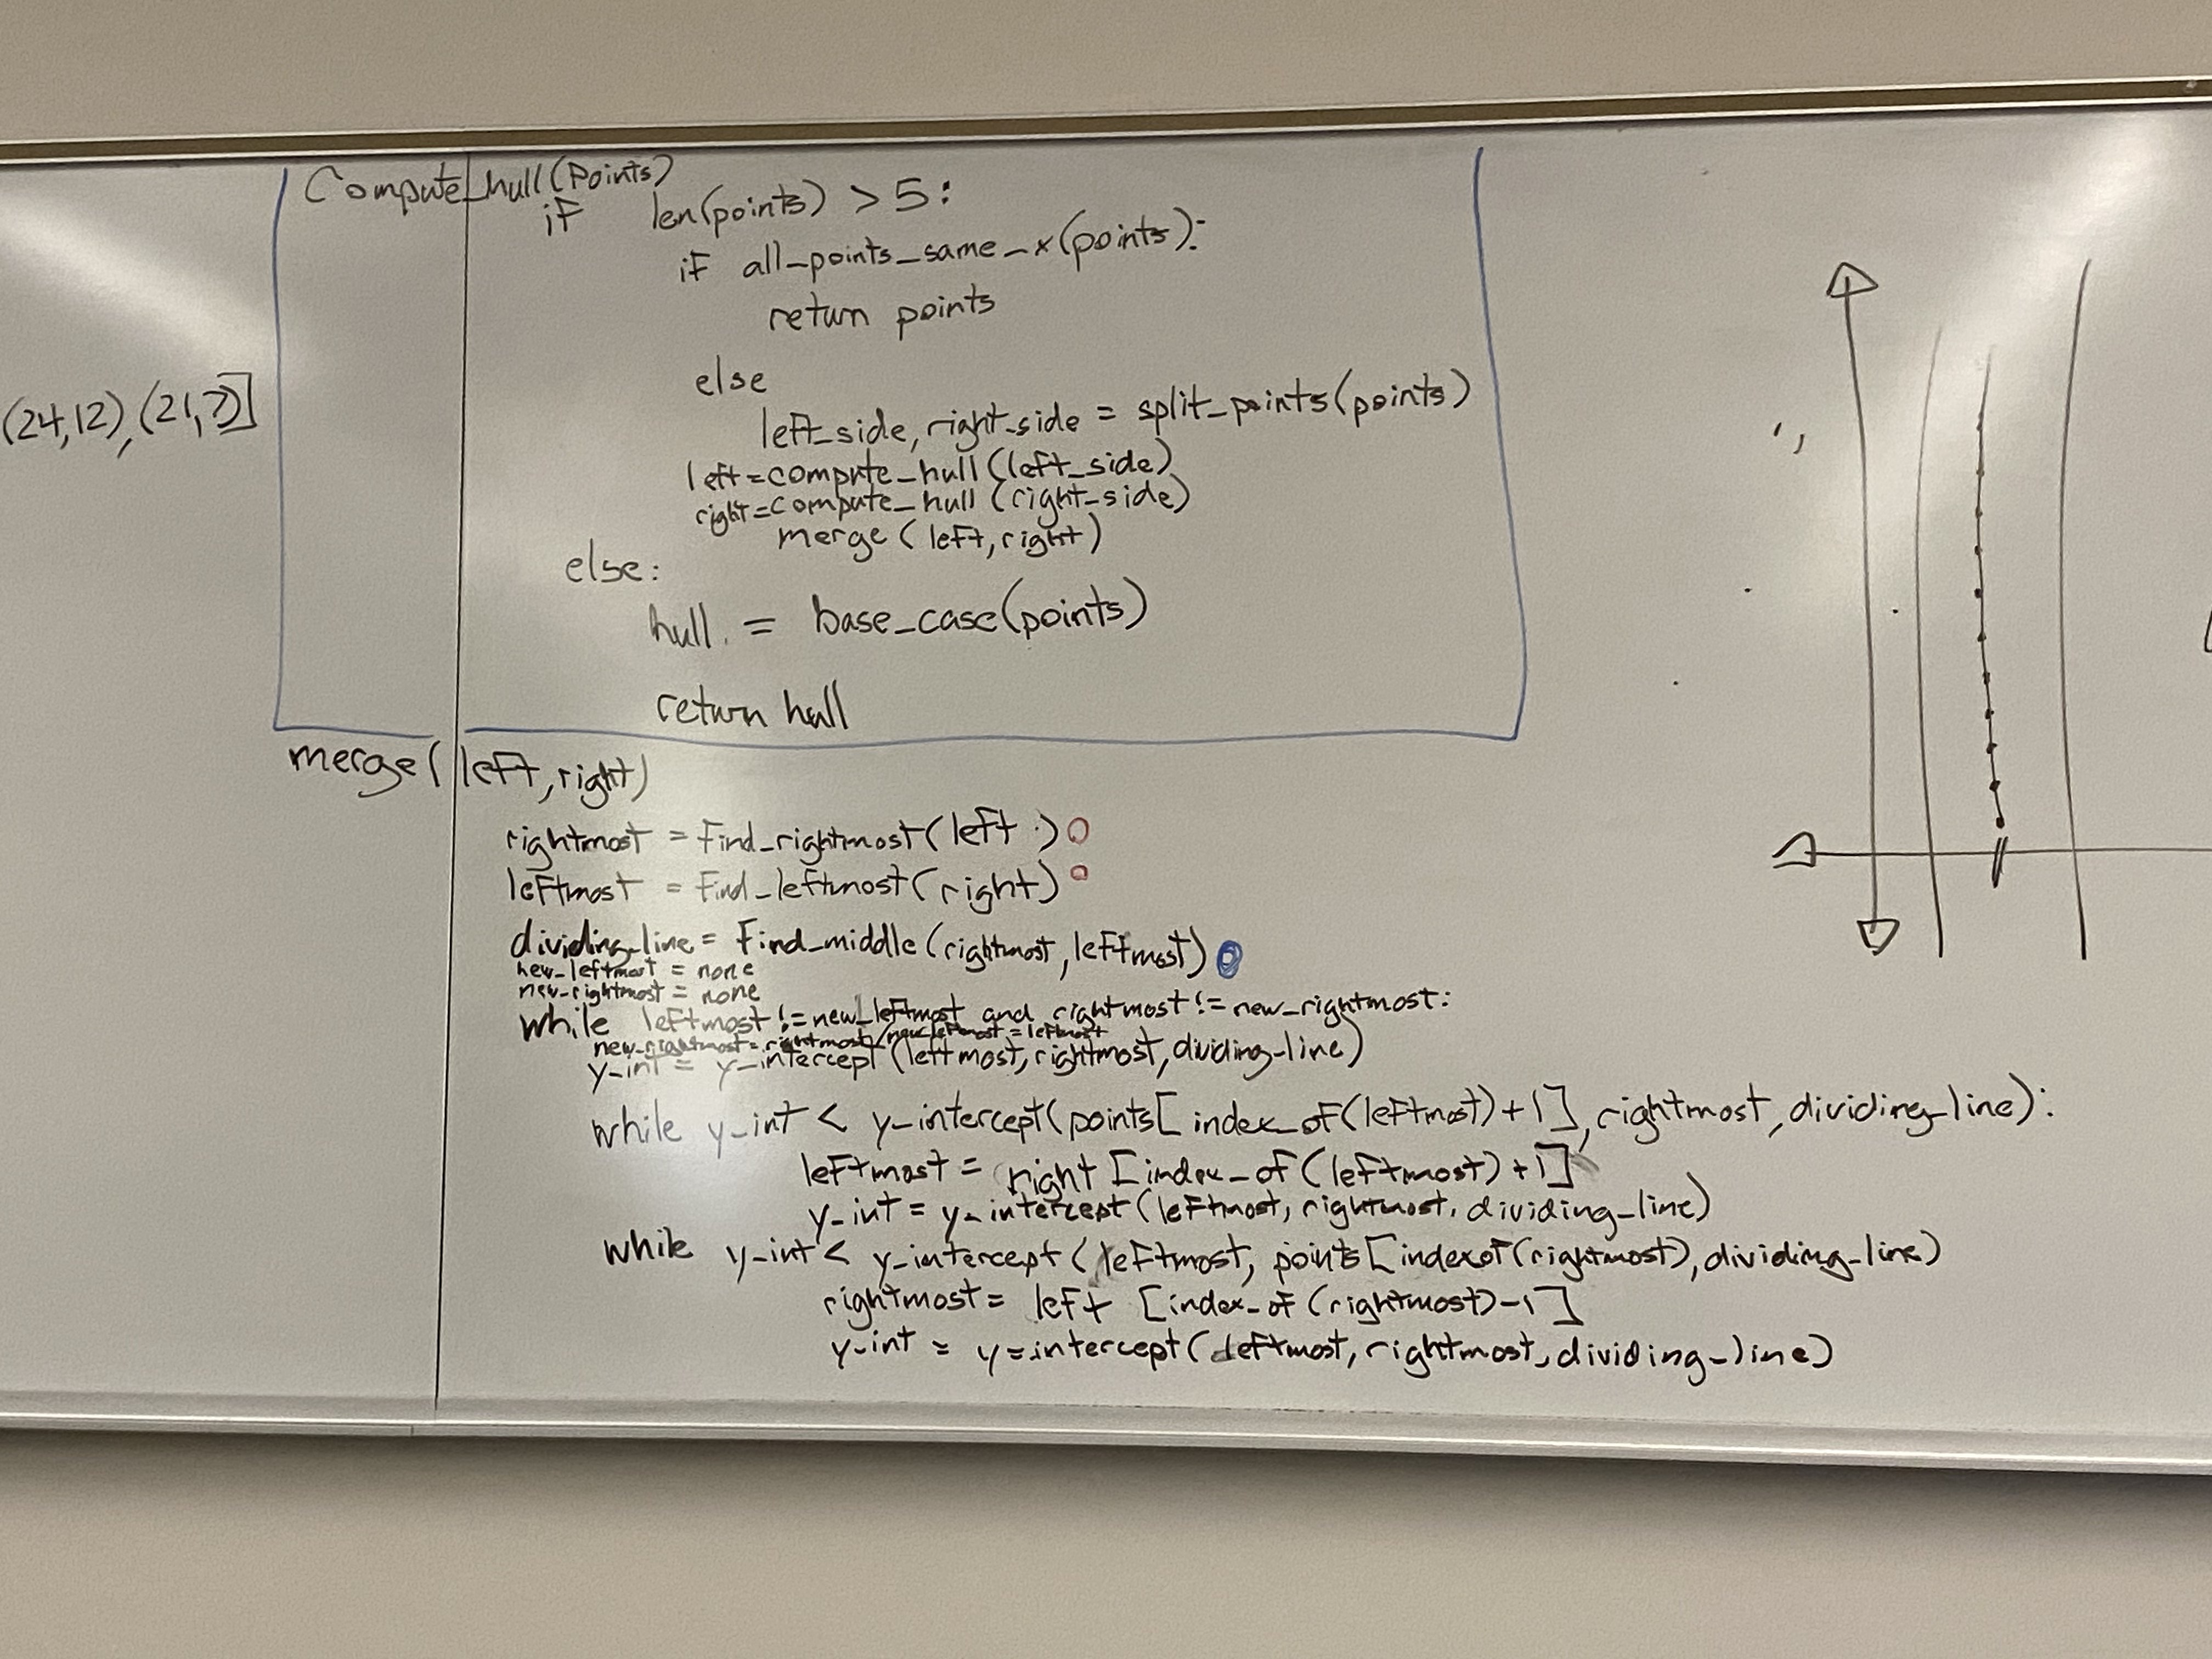 Compute_hull(Points)
if len(points) > 5:
if all_points_same_x(points):
return points
else
(24,12),(21,7)]
left_side, right_side = split_points(points)
left=compute_hull(left_side)
right=compute_hull(right_side)
merge(left,right)
else:
hull = base_case(points)
return hull
merge(left,right)
rightmost = Find_rightmost(left)
leftmost = Find_leftmost(right)
dividing_line = Find_middle(rightmost,leftmost)
new_leftmost = none
new_rightmost = none
while leftmost != new_leftmost and rightmost != new_rightmost:
new_rightmost = rightmost/new_leftmost = leftmost
y_int = y_intercept(leftmost,rightmost,dividing_line)
while y_int < y_intercept(points[index_of(leftmost)+1],rightmost,dividing_line):
leftmost = right[index_of(leftmost)+1]
y_int = y_intercept(leftmost, rightmost, dividing_line)
while y_int < y_intercept(leftmost, points[indexof(rightmost),dividing_line)
rightmost = left [index_of(rightmost)-1]
y_int = y_intercept(leftmost, rightmost, dividing_line)